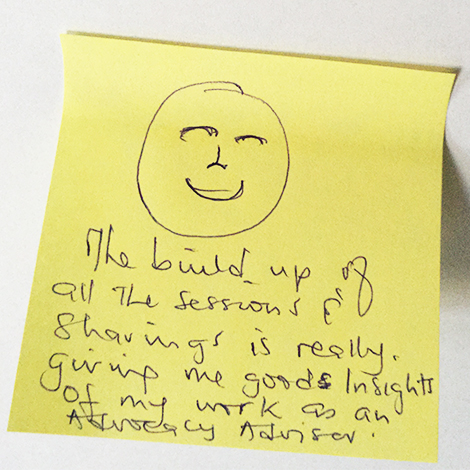 The build-up of
all the sessions &
sharings is really.
giving me goods Insights
of my work as an
Advocacy Adviser.